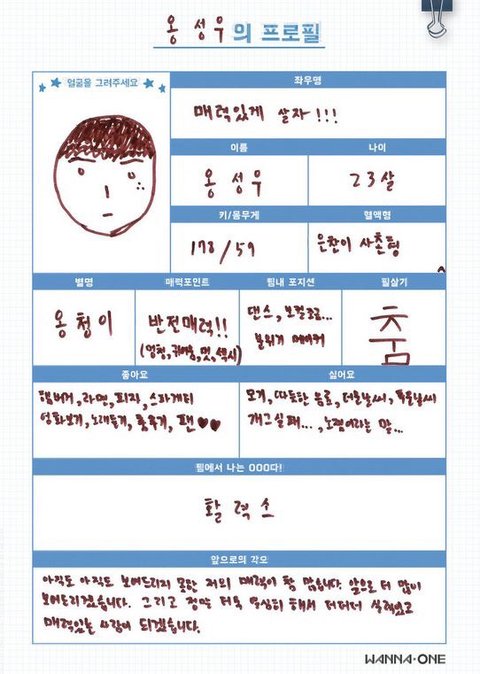 옹 성우의 프로필
얼굴을 그려주세요
좌우명
매력있게 살자!!!
이름
나이
옹 성우
23살
키/몸무게
혈액형
178/59
은찬이 사촌형
별명
매력포인트
팀내 포지션
필살기
옹청이
반전매력!!
(멍청,귀여움,멋,섹시)
댄스, 보컬ㅎㅎ...
분위기 메이커
춤
좋아요
싫어요
햄버거,라면,피자,스파게티
영화보기,노래듣기,춤추기,팬♥♥
모기,따듯한 음료,더운날씨,추운날씨
개그실패...,노잼이라는 말...
팀에서 나는 OOO다!
활력소
앞으로의 각오
아직도 아직도 보여드리지 못한 저의 매력이 참 많습니다. 앞으로 더 많이
보여드리겠습니다. 그리고 정말 더욱 열심히 해서 더더더 실력있고
매력있는 사람이 되겠습니다.
WANNA·ONE